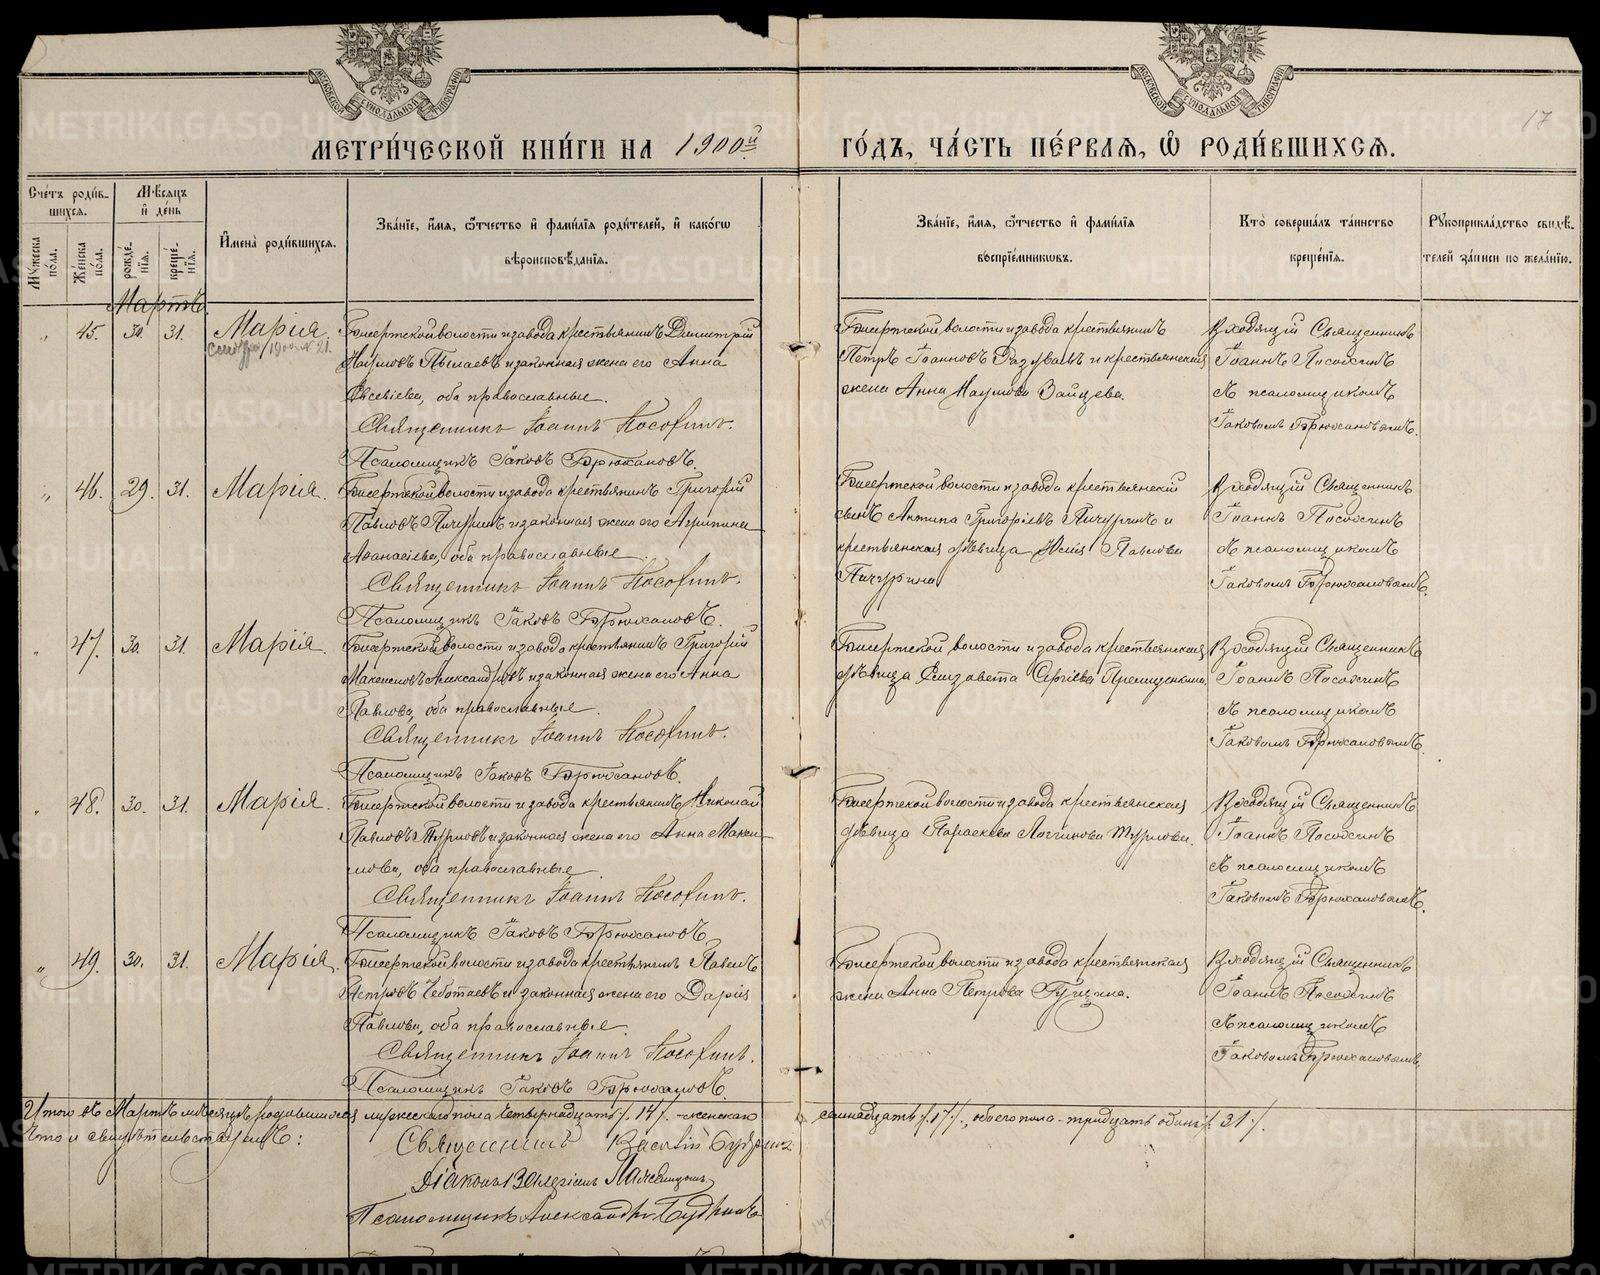 МОСКОВСКОЙ СѴНОДАЛЬНОЙ ТИПОГРАФІИ
МОСКОВСКОЙ СѴНОДАЛЬНОЙ ТИПОГРАФІИ
17
МЕТРИ́ЧЕСКОЙ КНИ́ГИ НА 1900й ГО́ДЪ, ЧА́СТЬ ПЕ́РВАЯ, Ѽ РОДИ́ВШИХСЯ.
Сче́тъ роди́в-
шихся.
Мѣ́сяцъ
и҆ де́нь
Му́жеска по́ла.
Же́нска по́ла.
рожде́-нїя.
креще́-нїя.
И҆мена̀ роди́вшихся.
Зва́нїе, и҆́мя, ѻ҆́тчество и҆ фами́лїя роди́телей, и҆ како́гѡ
вѣроисповѣ́данїя.
Зва́нїе, и҆́мя, ѻ҆́тчество и҆ фами́лїя
воспрїе́мниковъ.
Кто̀ соверша́лъ та́инство
креще́нїя.
Рꙋкоприкла́дство свидѣ́-
телей за́писи по жела́нїю.
Мартъ.
" 45. 30. 31. Марія
1900 № 21.
Бисертской волости и завода крестьянинъ Димитрій
Наумовъ Пылаевъ и законная жена его Анна
Евсевіева, оба православные.
Священникъ Іоаннъ Посохинъ.
Псаломщикъ Іаковъ Брюхановъ.
Бисертской волости и завода крестьянинъ
Петръ Іоанновъ и крестьянская
жена Анна Наумова Зайцева.
Входящій Священникъ
Іоаннъ Посохинъ
съ псаломщикомъ
Іаковомъ Брюхановымъ.
" 46. 29. 31. Марія.
Бисертской волости и завода крестьянинъ Григорій
Павловъ Пичугинъ и законная жена его Агрипина
Аѳанасіева, оба православные.
Священникъ Іоаннъ Посохинъ.
Псаломщикъ Іаковъ Брюхановъ.
Бисертской волости и завода крестьянскій
сынъ Антипа Григоріевъ Пичугинъ и
крестьянская дѣвица Юлія Павлова
Пичугина.
Входящій Священникъ
Іоаннъ Посохинъ
съ псаломщикомъ
Іаковомъ Брюхановымъ.
" 47. 30. 31. Марія.
Бисертской волости и завода крестьянинъ Григорій
Максимовъ Александровъ и законная жена его Анна
Павлова, оба православные.
Священникъ Іоаннъ Посохинъ.
Псаломщикъ Іаковъ Брюхановъ.
Бисертской волости и завода крестьянская
дѣвица Елизавета Сергіева
Входящій Священникъ
Іоаннъ Посохинъ
съ псаломщикомъ
Іаковомъ Брюхановымъ.
" 48. 30. 31. Марія.
Бисертской волости и завода крестьянинъ Николай
Павловъ Турловъ и законная жена его Анна Макси-
мова, оба православные.
Священникъ Іоаннъ Посохинъ.
Псаломщикъ Іаковъ Брюхановъ.
Бисертской волости и завода крестьянская
дѣвица Параскева Логгинова Турлова.
Входящій Священникъ
Іоаннъ Посохинъ
съ псаломщикомъ
Іаковомъ Брюхановымъ.
" 49. 30. 31. Марія.
Бисертской волости и завода крестьянинъ Павелъ
Петровъ Чеботаевъ и законная жена его Дарія
Павлова, оба православные.
Священникъ Іоаннъ Посохинъ.
Псаломщикъ Іаковъ Брюхановъ.
Бисертской волости и завода крестьянская
жена Анна Петрова Гущина.
Входящій Священникъ
Іоаннъ Посохинъ
съ псаломщикомъ
Іаковомъ Брюхановымъ.
Итого въ Мартѣ мѣсяцѣ родившихся мужескаго пола четырнадцать /. 14 /. женскаго семнадцать /. 17 /., обоего пола - тридцать одинъ /. 31 /.
Что и свидѣтельствуемъ:
Священникъ Василій Будринъ
Діаконъ Валеріанъ
Псаломщикъ Александръ Будринъ
METRIKI.GASO-URAL.RU